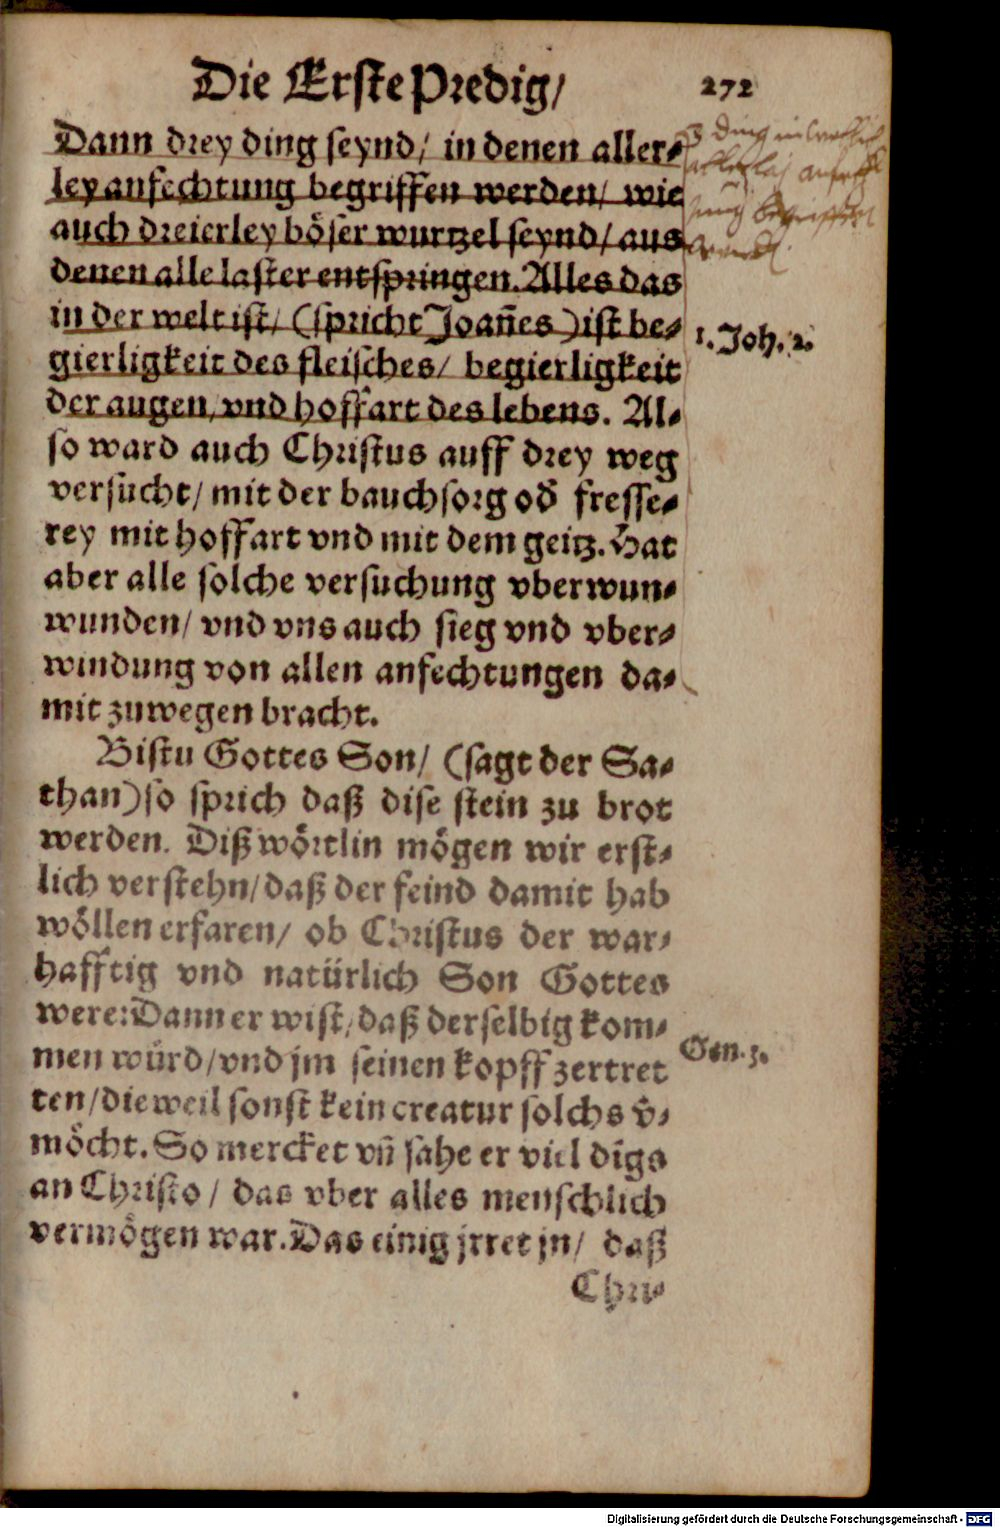 Die Erste Predig/ 272
Dann drey ding seynd/ in denen aller⸗
ley anfechtung begriffen werden/ wie
auch dreierley böser wurtzel seynd/ aus
denen alle laster entspringen. Alles das
in der welt ist/ (spricht Joan̄es) ist be⸗
gierligkeit des fleisches/ begierligkeit
der augen/ vnd hoffart des lebens. Al⸗
so ward auch Christus auff drey weg
versucht/ mit der bauchsorg od̄ fresse⸗
rey mit hoffart vnd mit dem geitz. Hat
aber alle solche versuchung vberwun⸗
wunden/ vnd vns auch sieg vnd vber⸗
windung von allen anfechtungen da⸗
mit zuwegen bracht.
Bistu Gottes Son/ (sagt der Sa⸗
than) so sprich daß dise stein zu brot
werden. Diß wörtlin mögen wir erst⸗
lich verstehn/ daß der feind damit hab
wöllen erfaren/ ob Christus der war⸗
hafftig vnd natürlich Son Gottes
were: Dann er wist/ daß derselbig kom⸗
men würd/ vnd jm seinen kopff zertret
ten/ die weil sonst kein creatur solchs v̄⸗
möcht. So mercket vn̄ sahe er viel dīgs
an Christo/ das vber alles menschlich
vermögen war. Das einig jrret jn/ daß
Chri⸗
3 ding in welchen
allerlaj anfech
tung begriffen
werden.
1. Joh. 2.
Gen. 3.
Digitalisierung gefördert durch die Deutsche Forschungsgemeinschaft - DFG